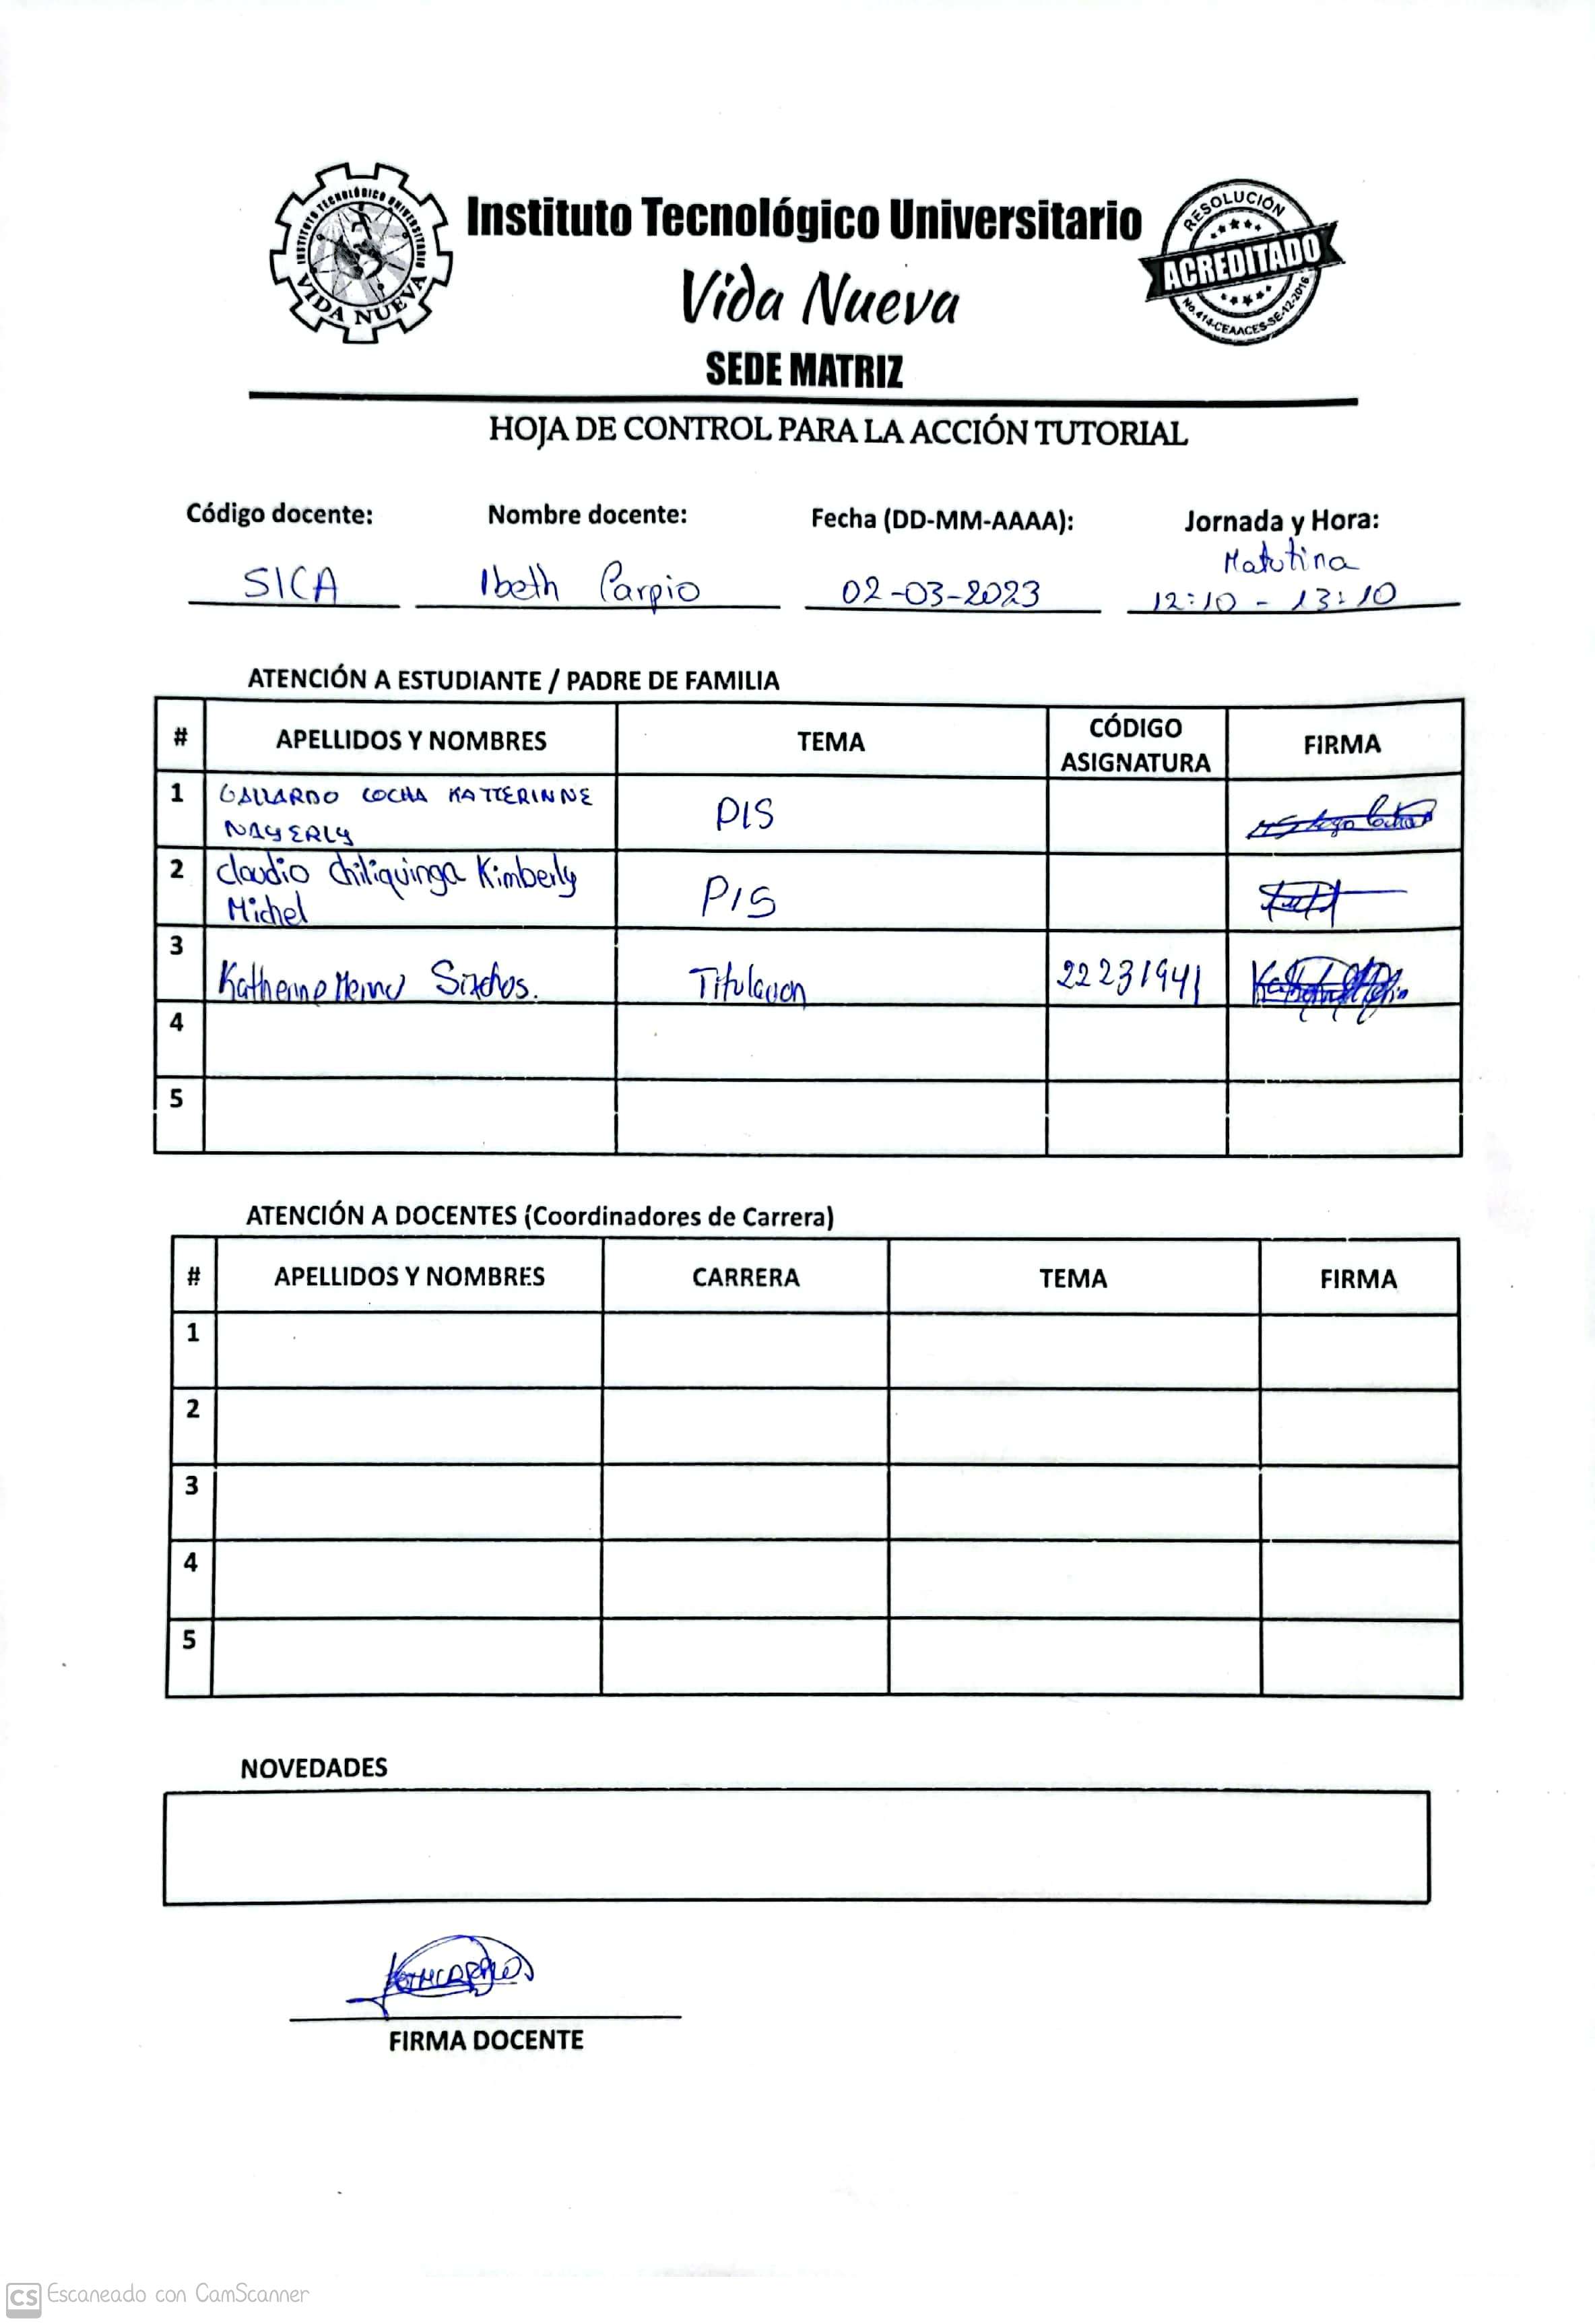 INSTITUTO TECNOLÓGICO UNIVERSITARIO
VIDA NUEVA
Instituto Tecnológico Universitario
Vida Nueva
SEDE MATRIZ
RESOLUCIÓN
ACREDITADO
No.414-CEAACES-SE-12-2016
HOJA DE CONTROL PARA LA ACCIÓN TUTORIAL
Código docente: Nombre docente: Fecha (DD-MM-AAAA): Jornada y Hora:
Matutina
SICA Ibeth Carpio 02-03-2023 12:10 - 13:10
ATENCIÓN A ESTUDIANTE / PADRE DE FAMILIA
# APELLIDOS Y NOMBRES TEMA CÓDIGO ASIGNATURA FIRMA
1 GALLARDO COCHA KATTERINNE PIS
NAYERLY
2 Claudio Chiliquinga Kimberly PIS
Michel
3 Katherine Sixchos. Titulacion 22231941
4
5
ATENCIÓN A DOCENTES (Coordinadores de Carrera)
# APELLIDOS Y NOMBRES CARRERA TEMA FIRMA
1
2
3
4
5
NOVEDADES
FIRMA DOCENTE
CS Escaneado con CamScanner